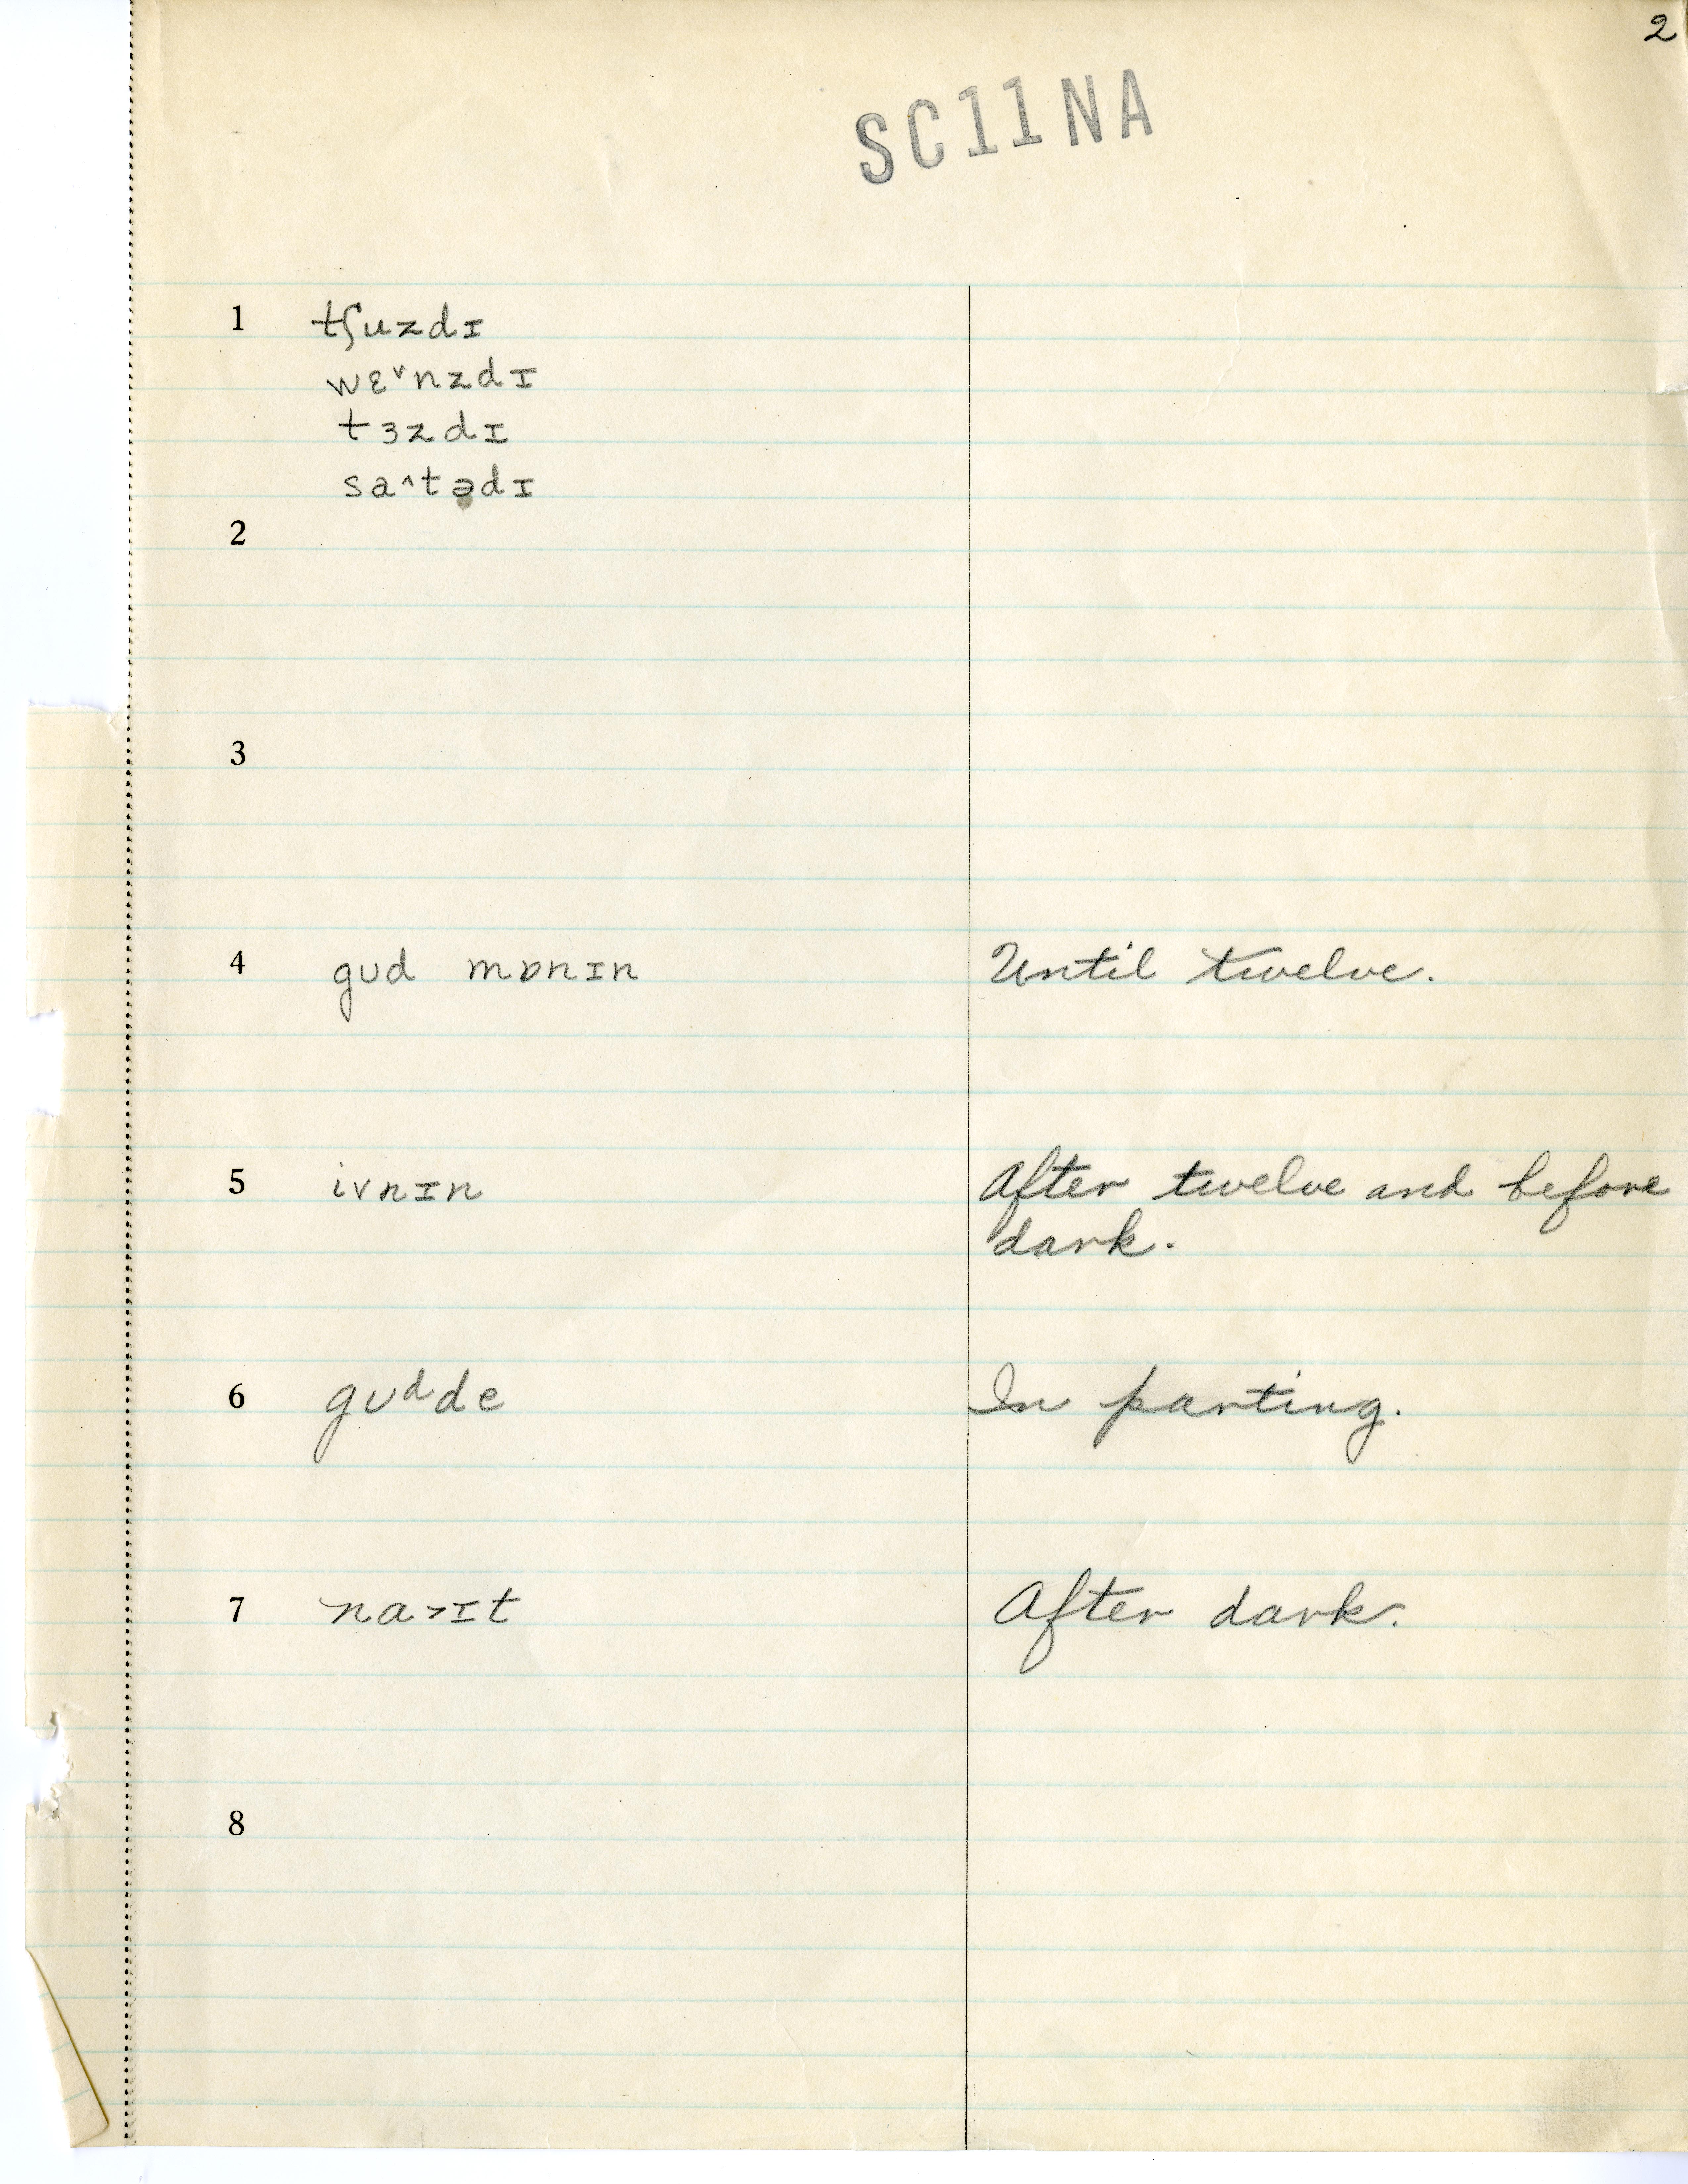 2
SC11NA
1 tʃuzdɪ
wɛ˅nzdɪ
tɜzdɪ
sa˄tədɪ
2
3
4 gʊd mɒnɪn Until twelve.
5 ivnɪn After twelve and before
dark.
6 gʊᵈde In parting.
7 na˃ɪt After dark.
8